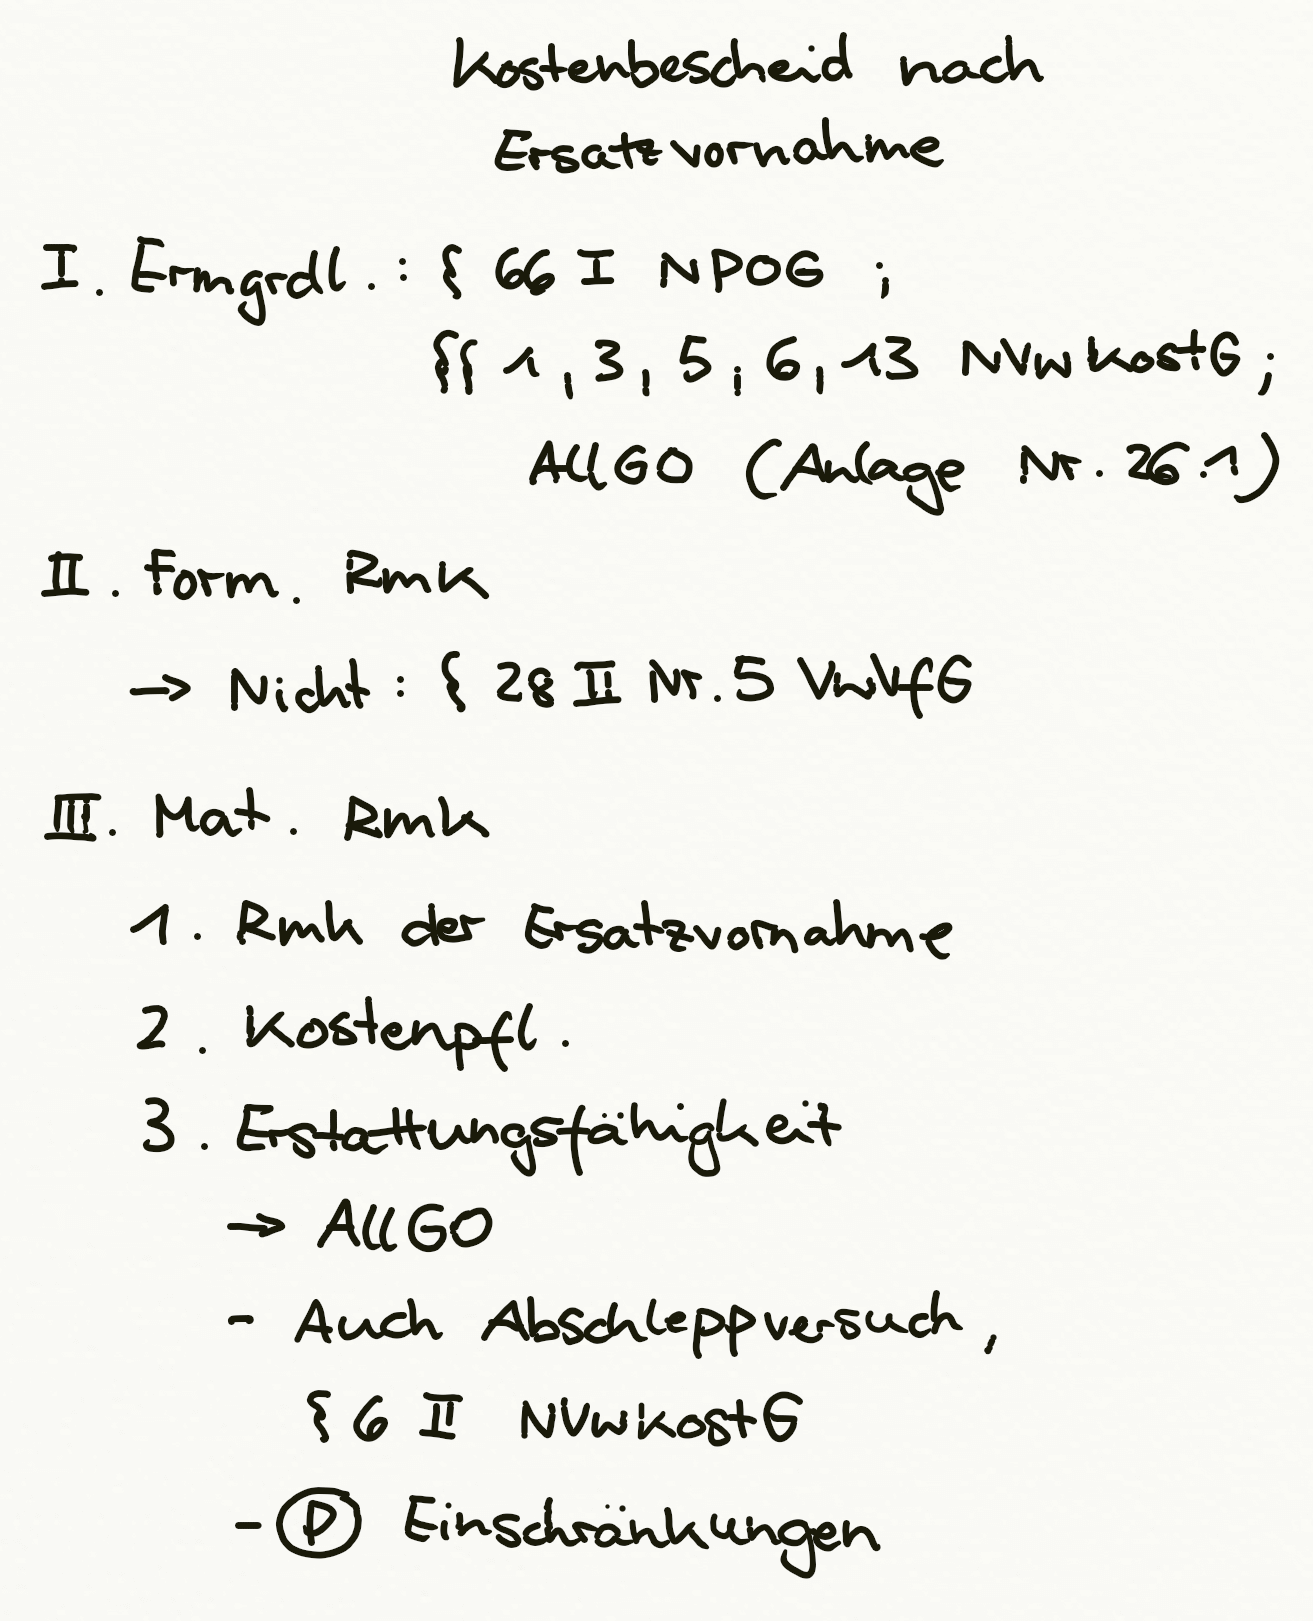 Kostenbescheid nach
Ersatzvornahme
I. Ermgrdl.: § 66 I NPOG ;
§§ 1, 3, 5, 6, 13 NVwKostG;
AllGO (Anlage Nr. 26.1)
II. Form. Rmk
→ Nicht: § 28 II Nr. 5 VwVfG
III. Mat. Rmk
1. Rmk der Ersatzvornahme
2. Kostenpfl.
3. Erstattungsfähigkeit
→ AllGO
- Auch Abschleppversuch,
§ 6 II NVwKostG
- Ⓟ Einschränkungen